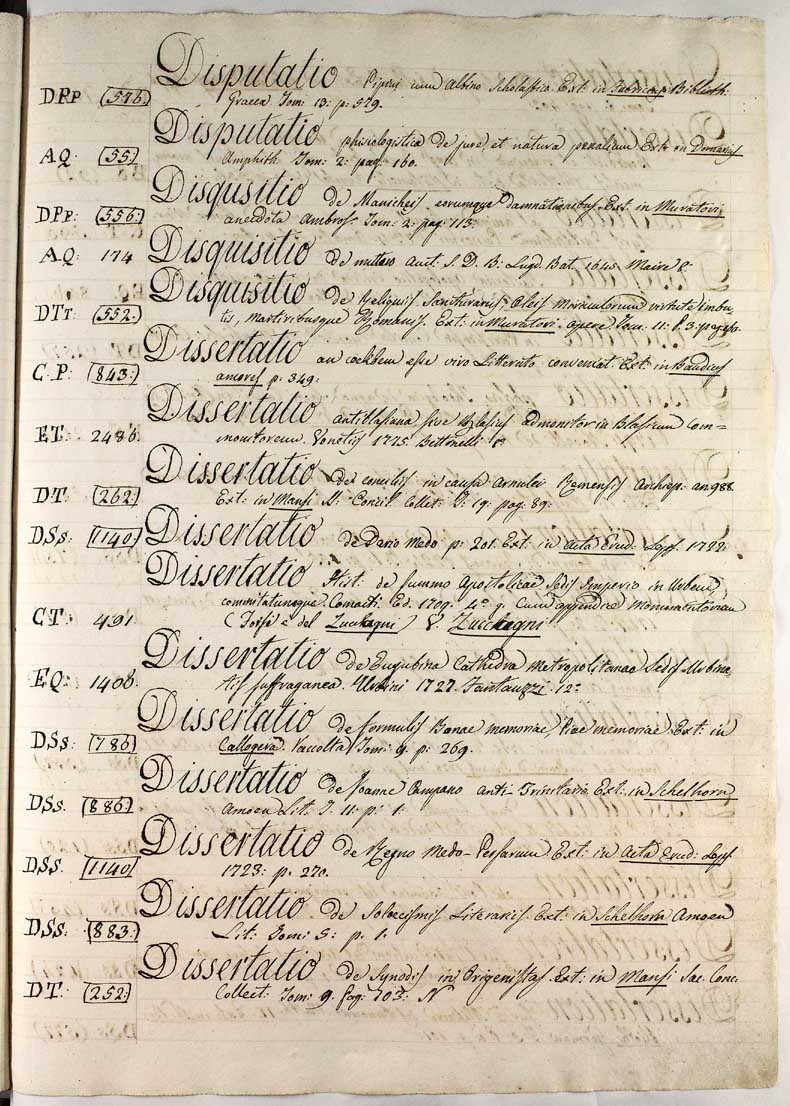 DPp (576.) Disputatio Pippini cum Albino Scholastico. Ext: in Fabricius Biblioth.
Graeca Tom: 13: p: 529.
AQ: (55.) Disputatio phisiologistica de jure, et natura penulium Ext: in Dornavius
Amphith. Tom: 2: pag: 160.
DPp: (556.) Disquisitio de Manicheis eorumque damnationibus. Ext: in Muratori
anecdota Ambros. Tom: 2: pag: 113.
AQ: 174 Disquisitio de Auct: S. D. B: Lugd. Bat. 1645. Maire 8.
DTt: (552.) Disquisitio de Reliquiis Sanctuariis Oleis virtute imbu-
tis, Martiribusque Romanis. Ext: in Muratori. opere Tom: 11: P. 3: pag:
C.P: (843.) Dissertatio an coelibem esse viro Litterato conveniat. Ext: in Baudius
amores p: 349:
ET: 2486. Dissertatio antiblasiana sive Blasius admonitor in Blasium Com=
monitorem. Venetiis 1775 Bettinelli 8.
DT: (262.) Dissertatio de conciliis in causa Arnulei Remensis Archiep: an: 988.
Ext: in Mansi SS: Concil: Collect: T: 19: pag: 89:
DSs: (1140) Dissertatio de Dario Medo p: 201. Ext: in Acta Erud: Lyps. 1722.
Dissertatio Hist: de summo Apostolicae Sedis Imperio in Urbem
CT: 491 commitatumque Comacli. Ed. 1709. 4.° g. Cum appendice monumentorum
(Forsi è del Zuccagni) V. Zuccagni
EQ: 1408. Dissertatio de Eugubina Cathedra Metropolitanae Sedis Urbina
tis suffraganea. Urbini 1727. Fantauzzi. 12.°
DSs: (786) Dissertatio de formulis Bonae memoriae, Piae memoriae. Ext: in
Callogerà. Raccolta Tom: 9. p: 269.
DSs. (886.) Dissertatio de Joanne Campano anti-Trinitario. Ext: in Schelhorn
Amoen Lit. T. 11: p: 1.
DSs. (1140) Dissertatio de Regno Medo-Persarum Ext: in Acta Erud: Lyps.
1723: p. 270.
DSs: (883.) Dissertatio de Soloecismis Literariis Ext: in Schelhorn Amoen
Lit: Tomi 5: p. 1.
DT: (252.) Dissertatio de Synodis in Origenistas. Ext: in Mansi Sac. Conc.
Collect: Tom: 9. Pag: 703.